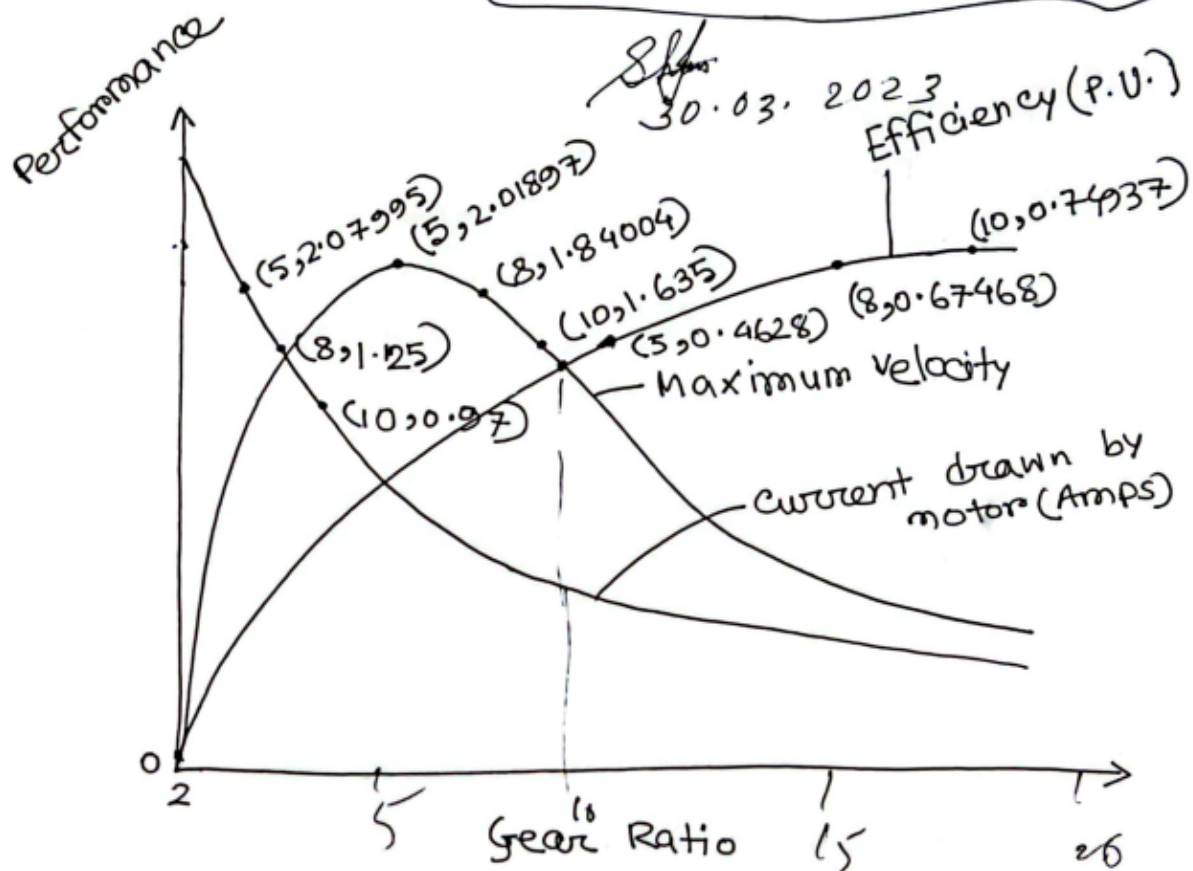 30.03. 2023
Performance
Efficiency (P.U.)
(5,2.07995)
(5,2.01897)
(8,1.84004)
(10,1.635)
(10,0.74937)
(8,1.125)
(5,0.4628)
(8,0.67468)
(10,0.97)
Maximum velocity
Current drawn by
motor (Amps)
0
2
5
10
15
20
Gear Ratio